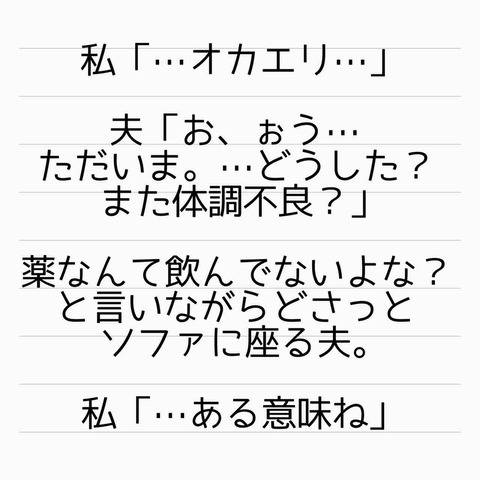 私「…オカエリ…」
夫「お、ぉう…
ただいま。…どうした？
また体調不良？」
薬なんて飲んでないよな？
と言いながらどさっと
ソファに座る夫。
私「…ある意味ね」